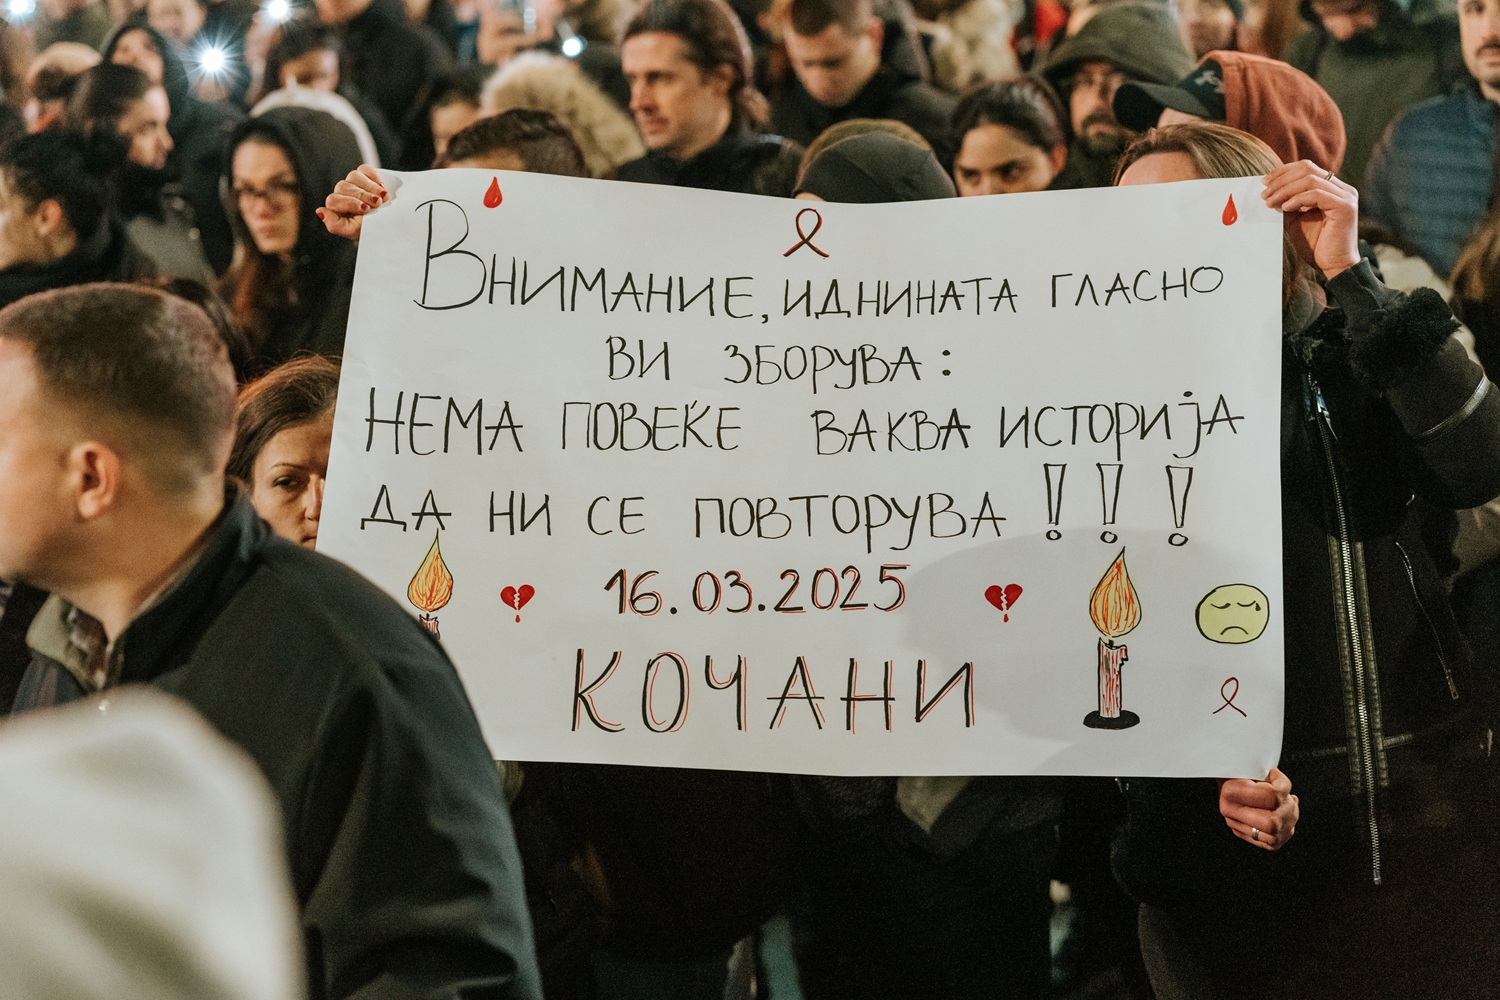 Внимание, иднината гласно
ви зборува:
Нема повеќе ваква историја
да ни се повторува!!!
16.03.2025
КОЧАНИ